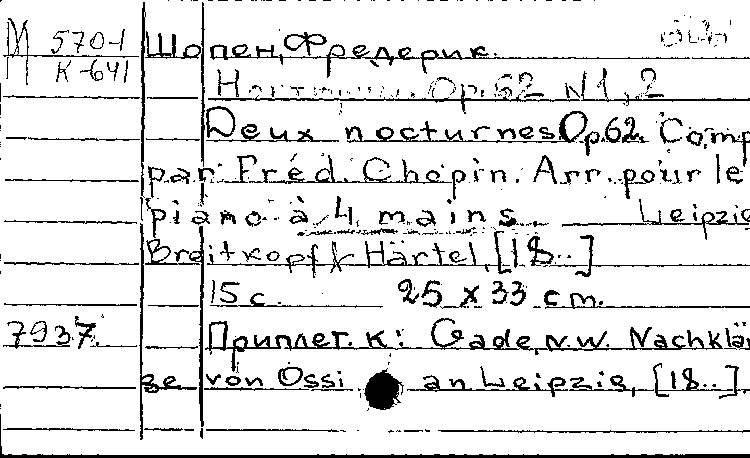 М 570-1
К-641
Шопен, Фредерик.
Ноктюрны. Op. 62 N1,2
Deux nocturnes Op 62. Comp
par Fréd. Chopin. Arr. pour le
piano à 4 mains. Leipzig
Breitkopf & Härtel, [18..]
15 с. 25 x 33 см.
7937. Приплет. к: Gade, N.W. Nachklän
ge von Ossi an Leipzig, [18..]